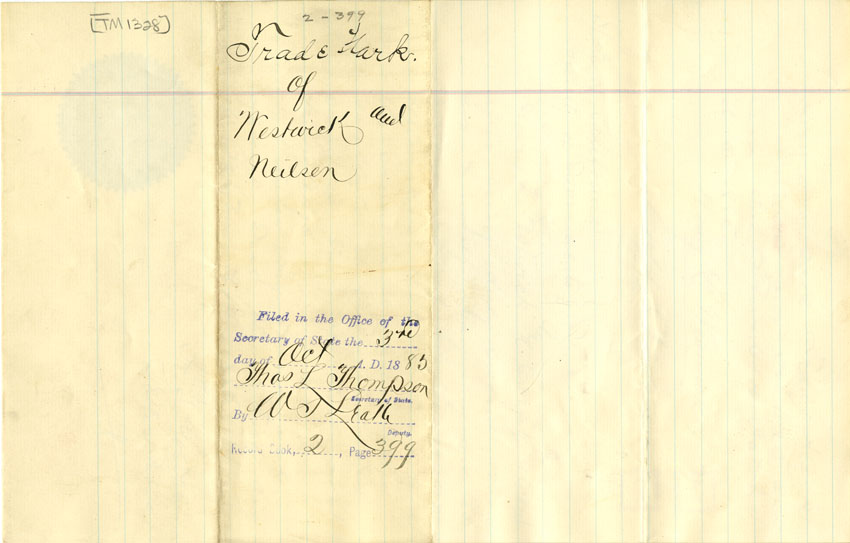 [TM 1328]
2-399
Trade Mark.
of
Westwick and
Neilsen
Filed in the Office of the
Secretary of State the 3rd
day of Oct A. D. 1883
Thos L Thompson
Secretary of State.
By W T Leake
Deputy.
Record Book, 2, Page 399